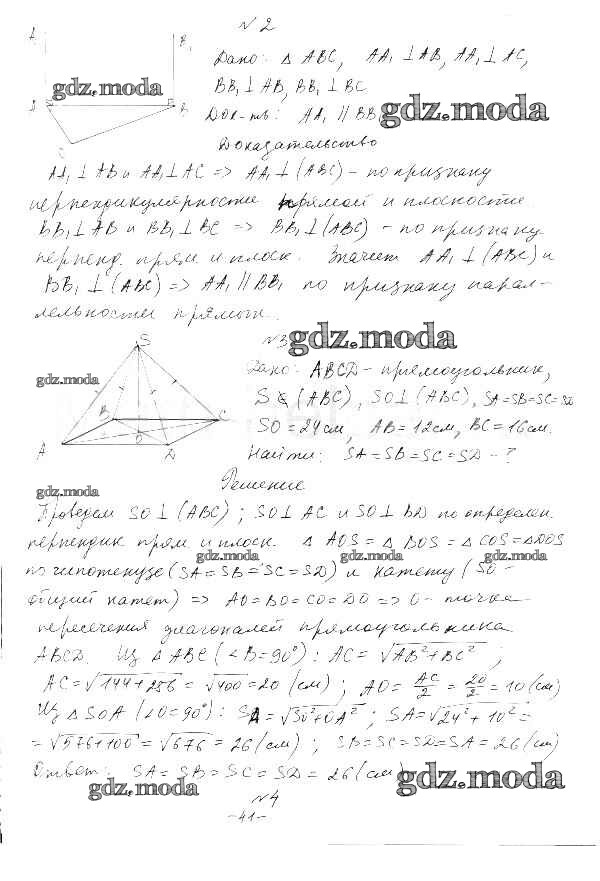 №2
A₁ B₁
Дано: △ ABC, AA₁ ⊥ AB, AA₁ ⊥ AC,
BB₁ ⊥ AB, BB₁ ⊥ BC
gdz.moda
Док-ть: AA₁ ∥ BB₁
gdz.moda
A B
C
Доказательство
AA₁ ⊥ AB и AA₁ ⊥ AC => AA₁ ⊥ (ABC) - по признаку
перпендикулярности прямой и плоскости.
BB₁ ⊥ AB и BB₁ ⊥ BC => BB₁ ⊥ (ABC) - по признаку
перпенд. прям и плоск. Значит AA₁ ⊥ (ABC) и
BB₁ ⊥ (ABC) => AA₁ ∥ BB₁ по признаку парал-
лельности прямых.
№3
gdz.moda
S
Дано: ABCD - прямоугольник,
gdz.moda
S ∉ (ABC), SO ⊥ (ABC), SA=SB=SC=SD
B C
SO = 24см, AB = 12см, BC = 16см.
O
A D
Найти: SA = SB = SC = SD - ?
Решение
gdz.moda
Проведем SO ⊥ (ABC); SO ⊥ AC и SO ⊥ BD по определен.
перпендик прям и плоск. △ AOS = △ BOS = △ COS = △DOS
gdz.moda gdz.moda gdz.moda
по гипотенузе (SA = SB = SC = SD) и катету (SO -
общий катет) => AO = BO = CO = DO => O - точка
пересечения диагоналей прямоугольника
ABCD. Из △ ABC (∠B = 90°): AC = √AB² + BC² ;
AC = √144 + 256 = √400 = 20 (см); AO = AC/2 = 20/2 = 10 (см)
Из △ SOA (∠O = 90°): SA = √SO² + OA² ; SA = √24² + 10² =
= √576 + 100 = √676 = 26 (см); SB = SC = SD = SA = 26 (см)
Ответ: SA = SB = SC = SD = 26 (см)
gdz.moda gdz.moda
№4
-41-